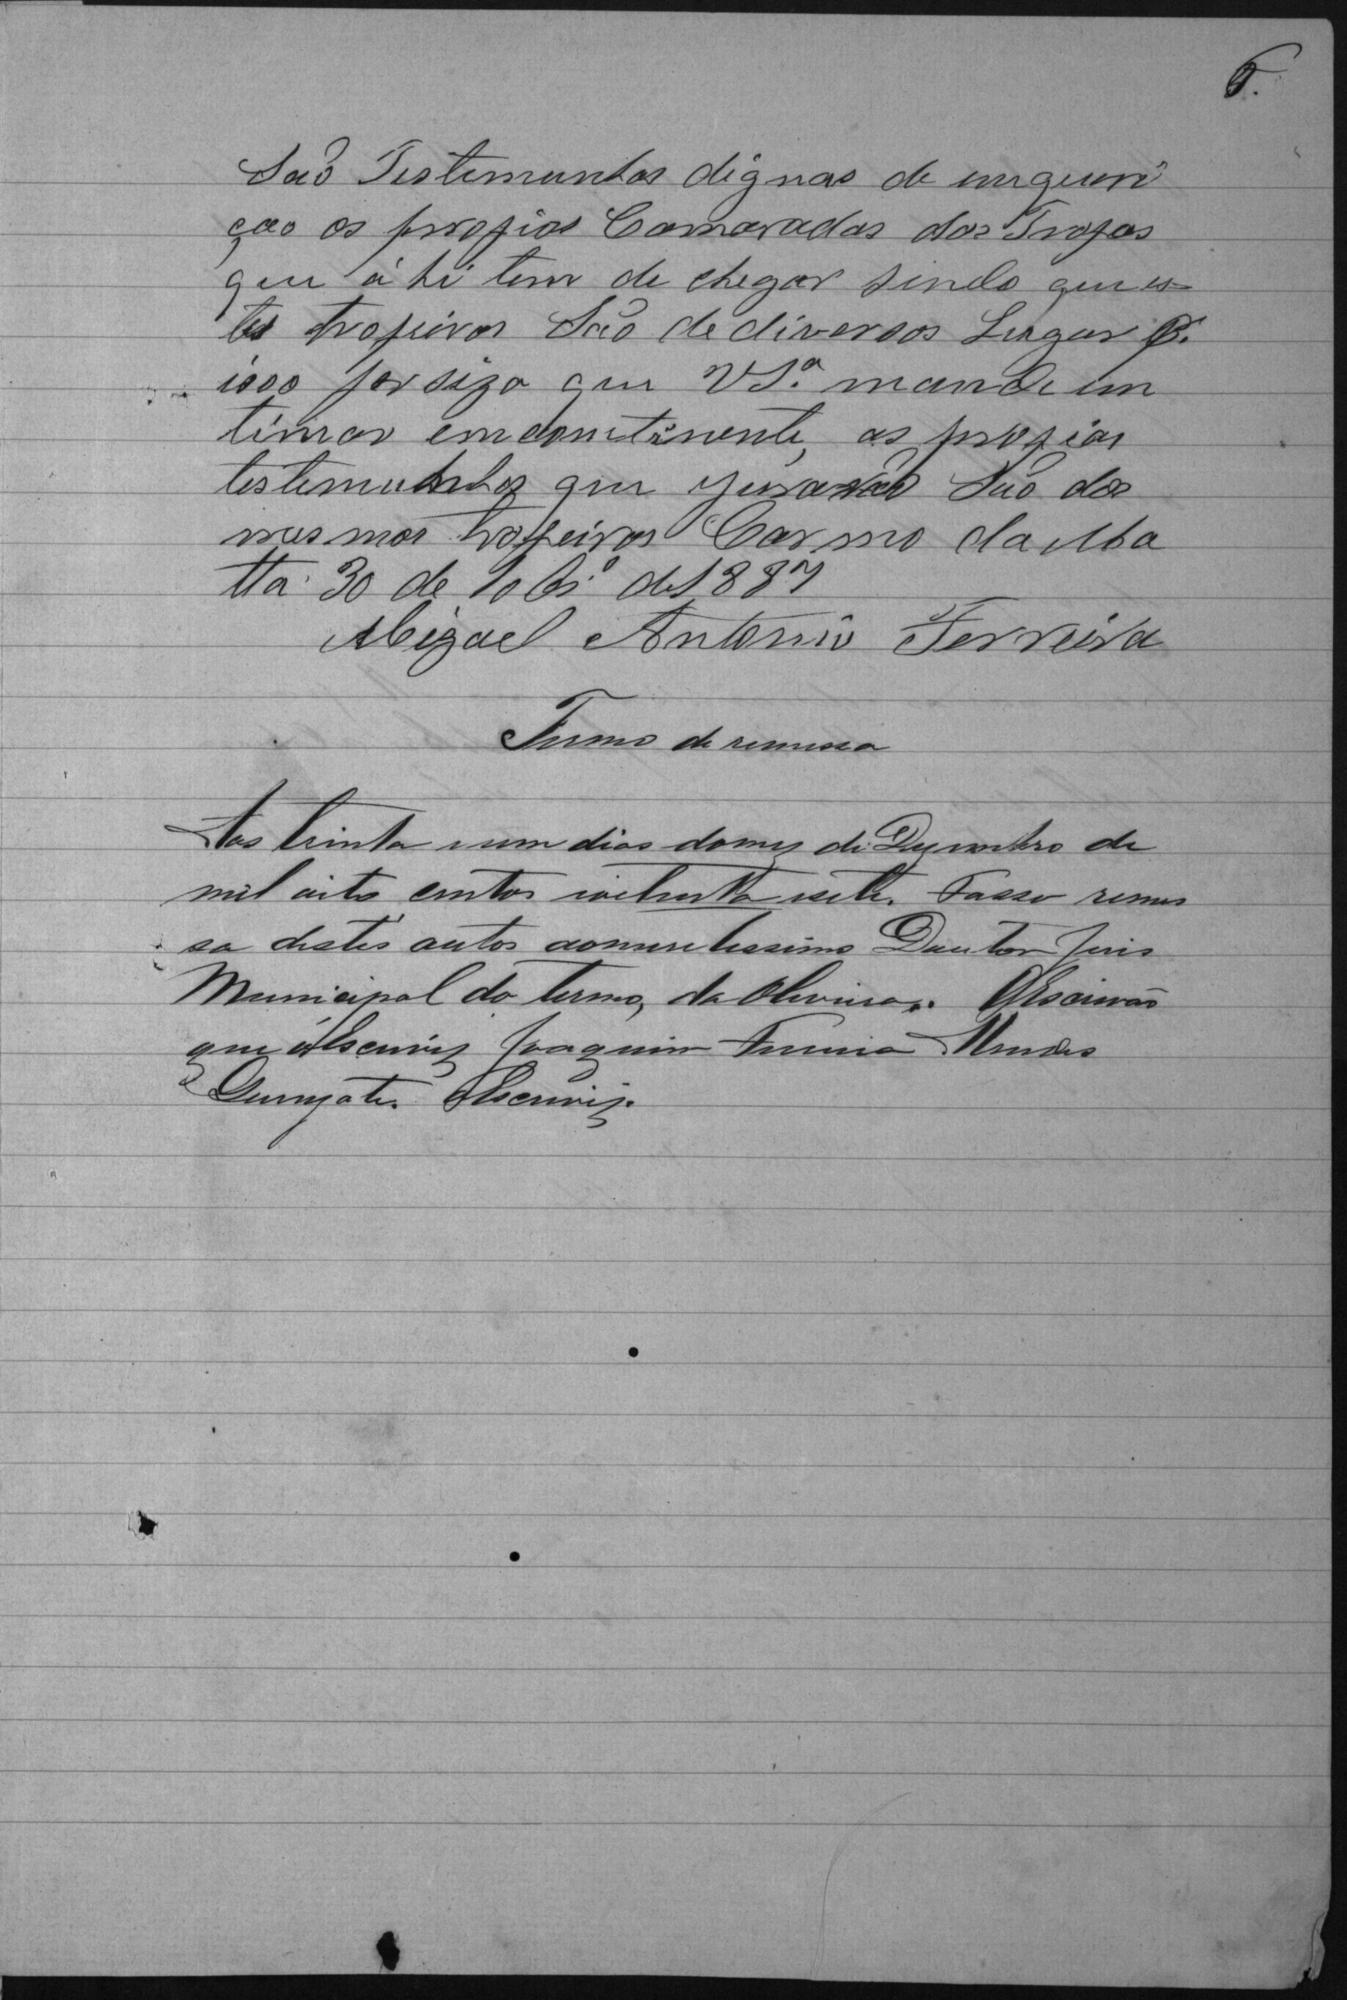 6.
São Testemunhas dignas de enqueri
ção os propios Camaradas das Tropas
que á hi tem de chegar sendo que es=
tes tropeiros São de diversos Lugar P.
isso persiza que V Sª. mande en
timar encontinente, as propias
testemunhas que jurarão São dos
mesmos tropeiros Carmo da Ma
tta 30 de 10br.º de 1887
Migael Antonio Ferreira
Termo de remessa
Aos trinta e um dias do mez de Dezembro de
mil oito centos e oitenta e sete. Fasso remes
sa destes autos ao meretissimo Doutor Juis
Municipal do termo, da Oliveira. O Escrivão
que o Escrivy Joaquim Ferreira Mendes
Escriviz.